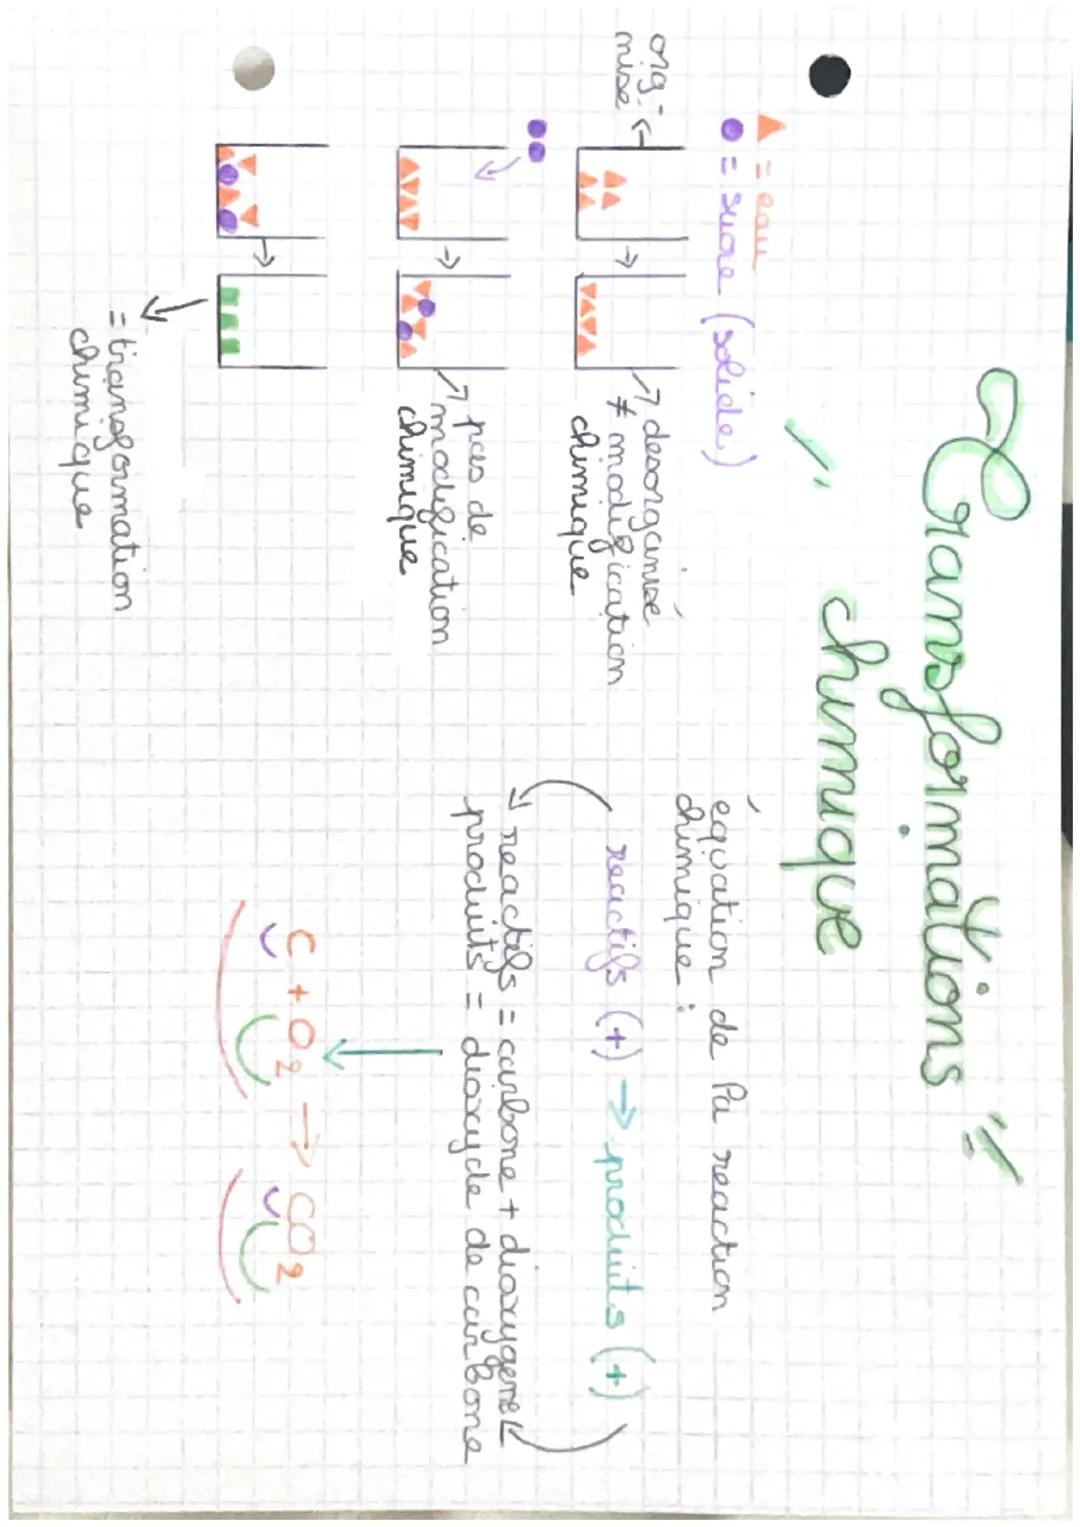 Transformations
chimique
▲ = eau
● = sucre (solide)
orga-
nisé
desorganisé
≠ modification
chimique
pas de
modification
chimique
= transformation
chimique
équation de la reaction
chimique :
reactifs (+) → produits (+)
reactifs = carbone + dioxygene
produits = dioxyde de carbone
C + O2 → CO2